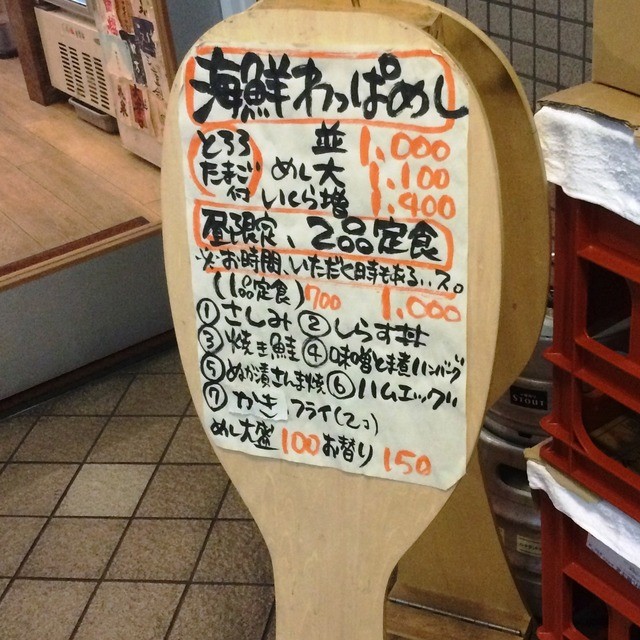 海鮮わっぱめし
とろろ 並 1,000
たまご めし大 1,100
付 いくら増 1,400
昼限定、2品定食
※お時間、いただく時もある..ス。
(1品定食)700 1,000
①さしみ ②しらす丼
③焼き鮭 ④味噌とま煮ハンバーグ
⑤ぬか漬さんま焼 ⑥ハムエッグ
⑦かき フライ(2コ)
めし大盛 100 お替り 150
STOUT